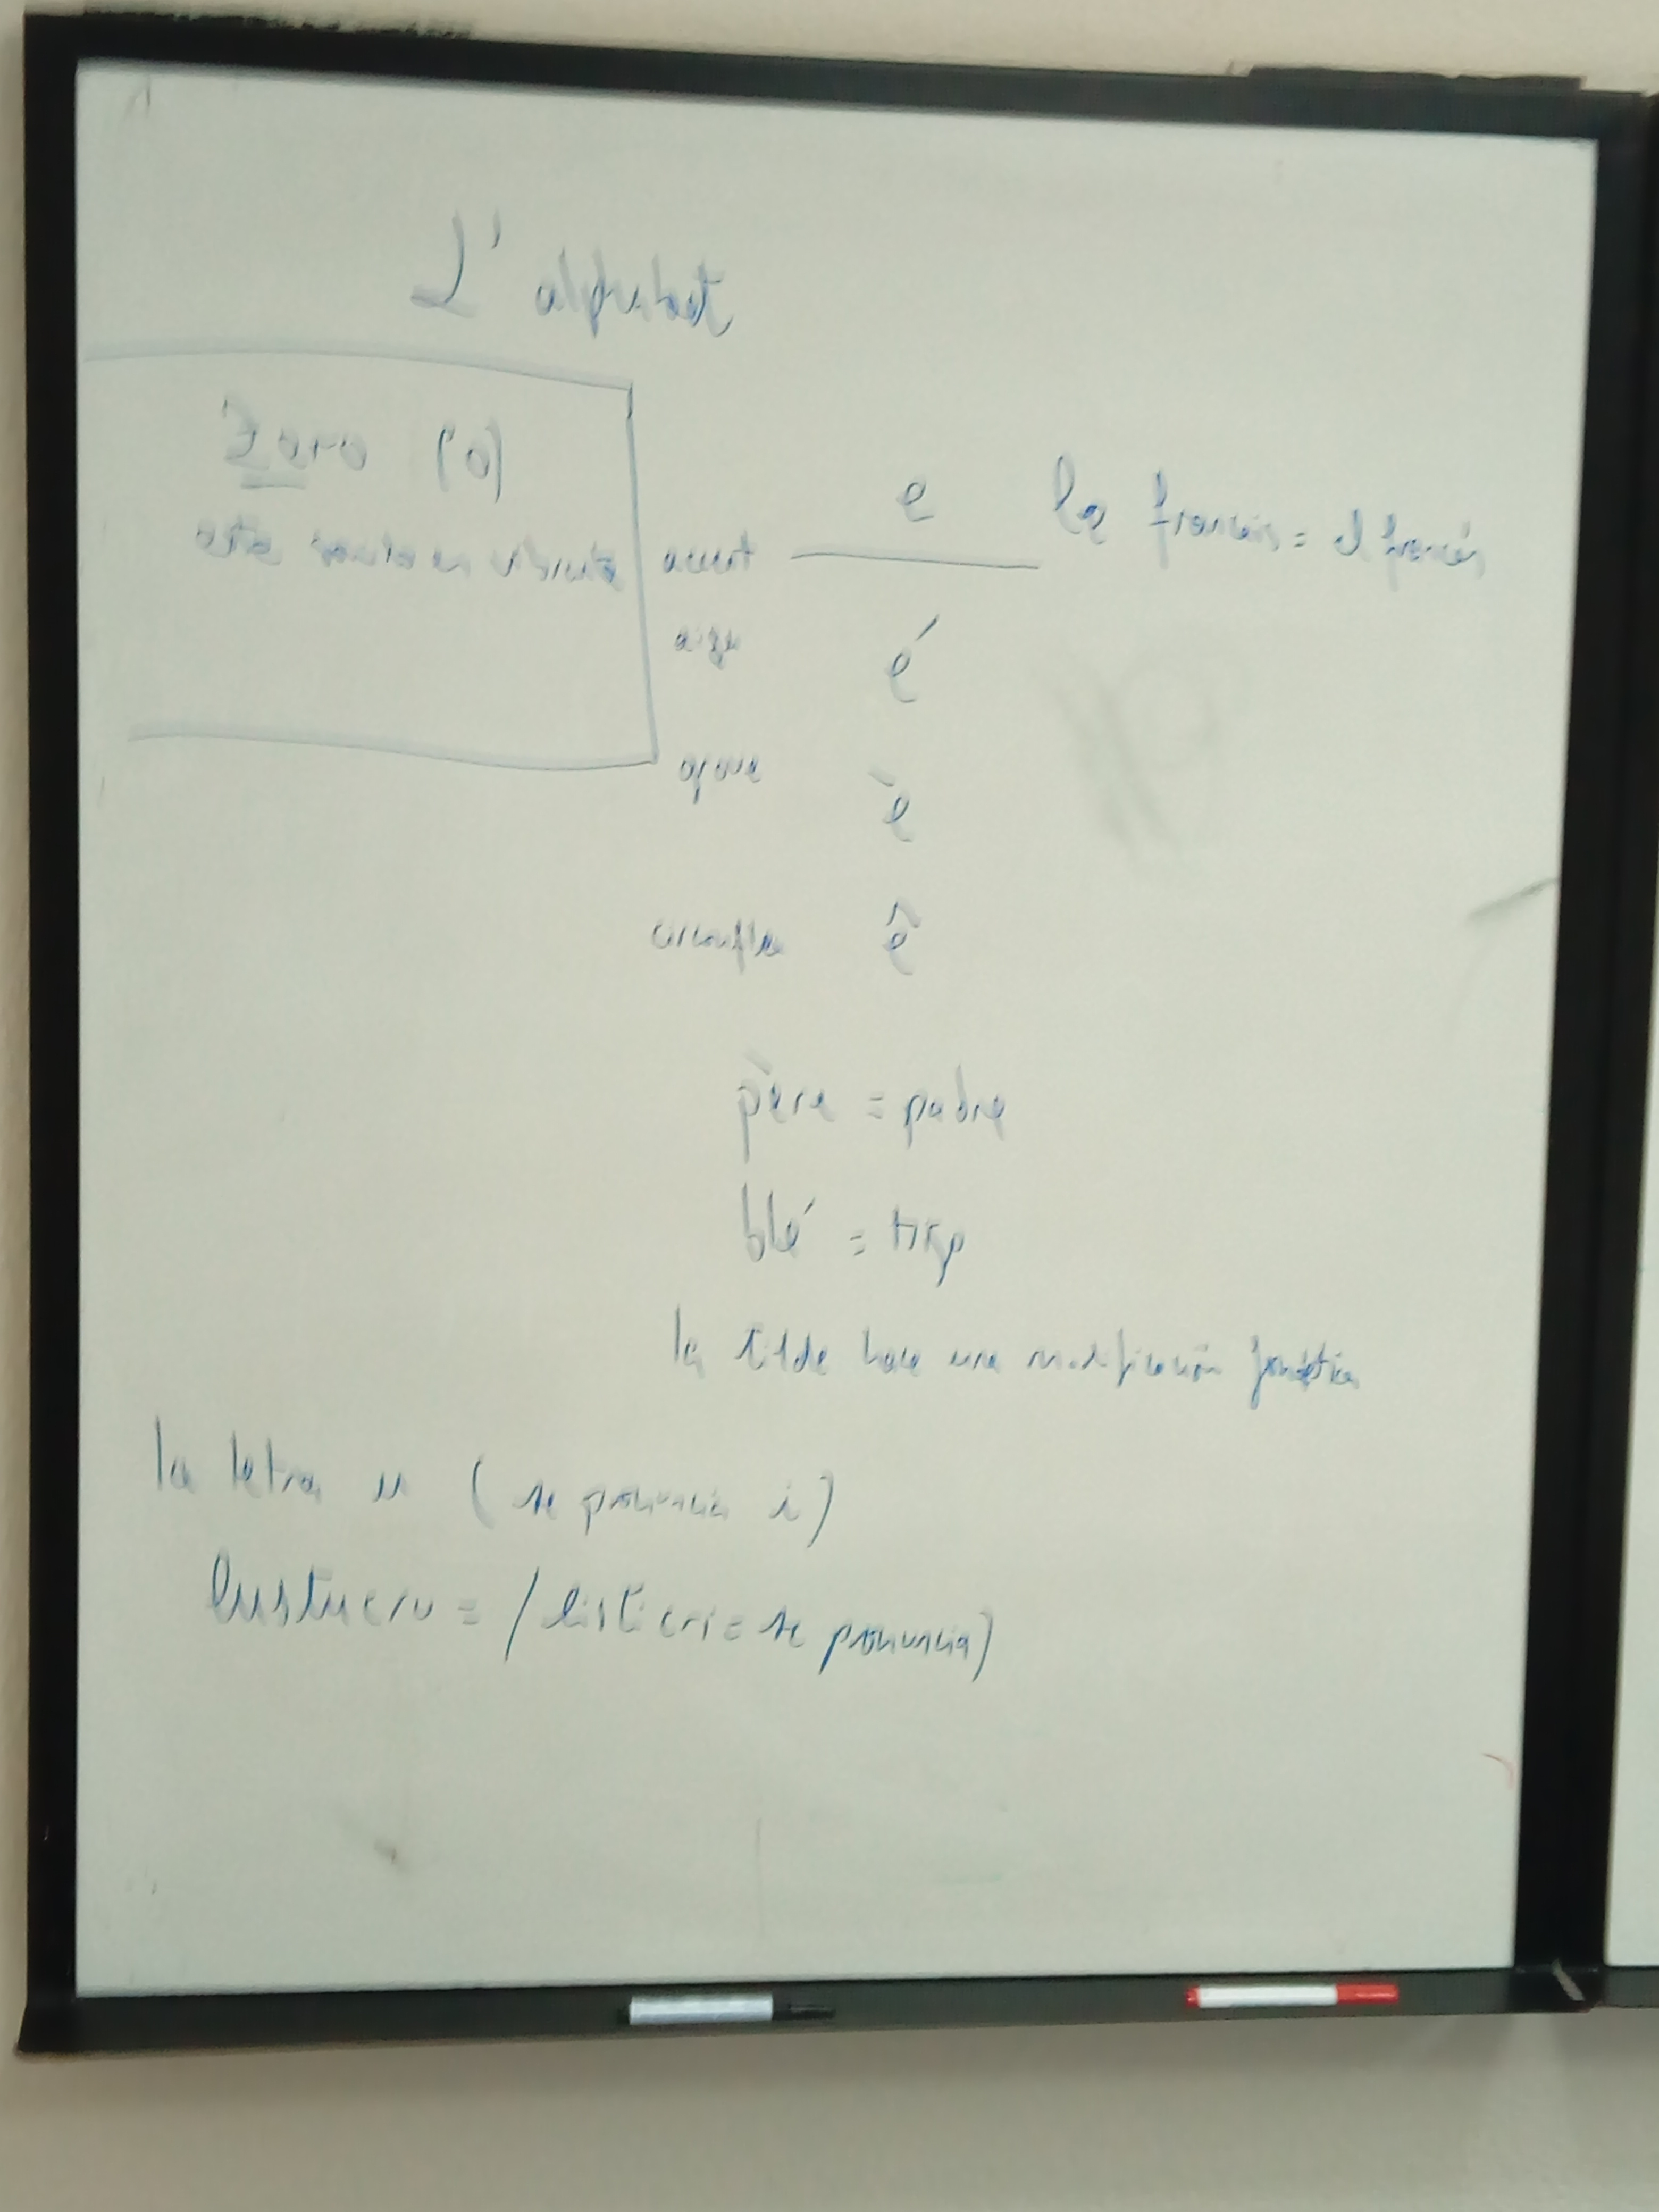 L'alphabet
Zero (0)
e le français = el francés
accent
aigu é
grave è
circonflexe ê
père = padre
blé = trigo
la tilde hace una modificación fonética
la letra u (se pronuncia i)
lustucru = (listicri = se pronuncia)